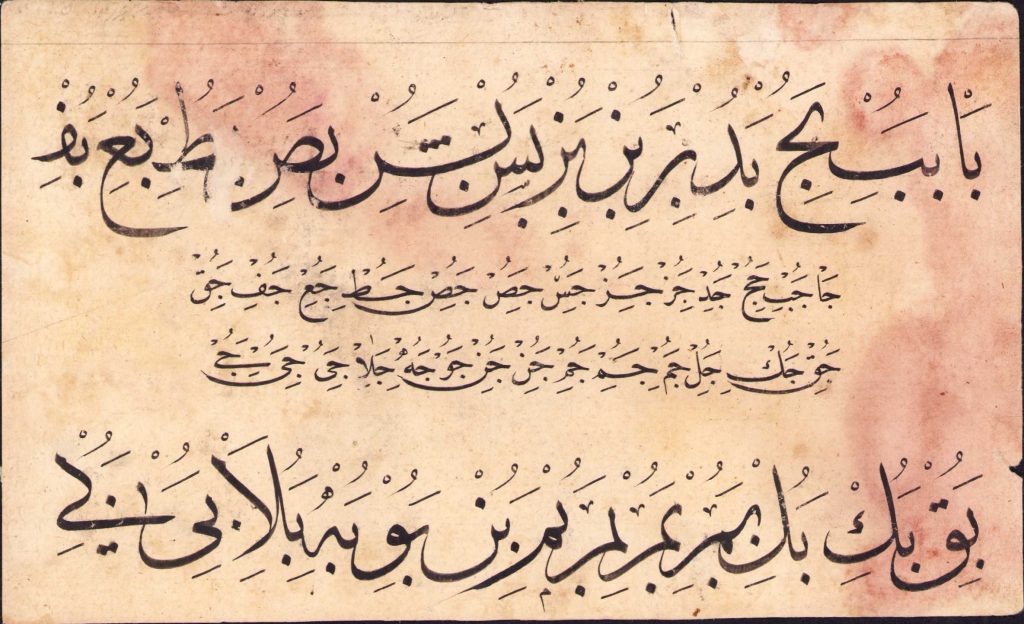 با بب بج بد بر بن بز بس بس بص بط بع بف
جا جب جج جد جر جر جس جس جص جط جع جف جق
جق جك جل جم جم جم جن جن جو جه جلا جى جى جى
بق بك بل بم بم بم بم بن بو به بلا بى بى